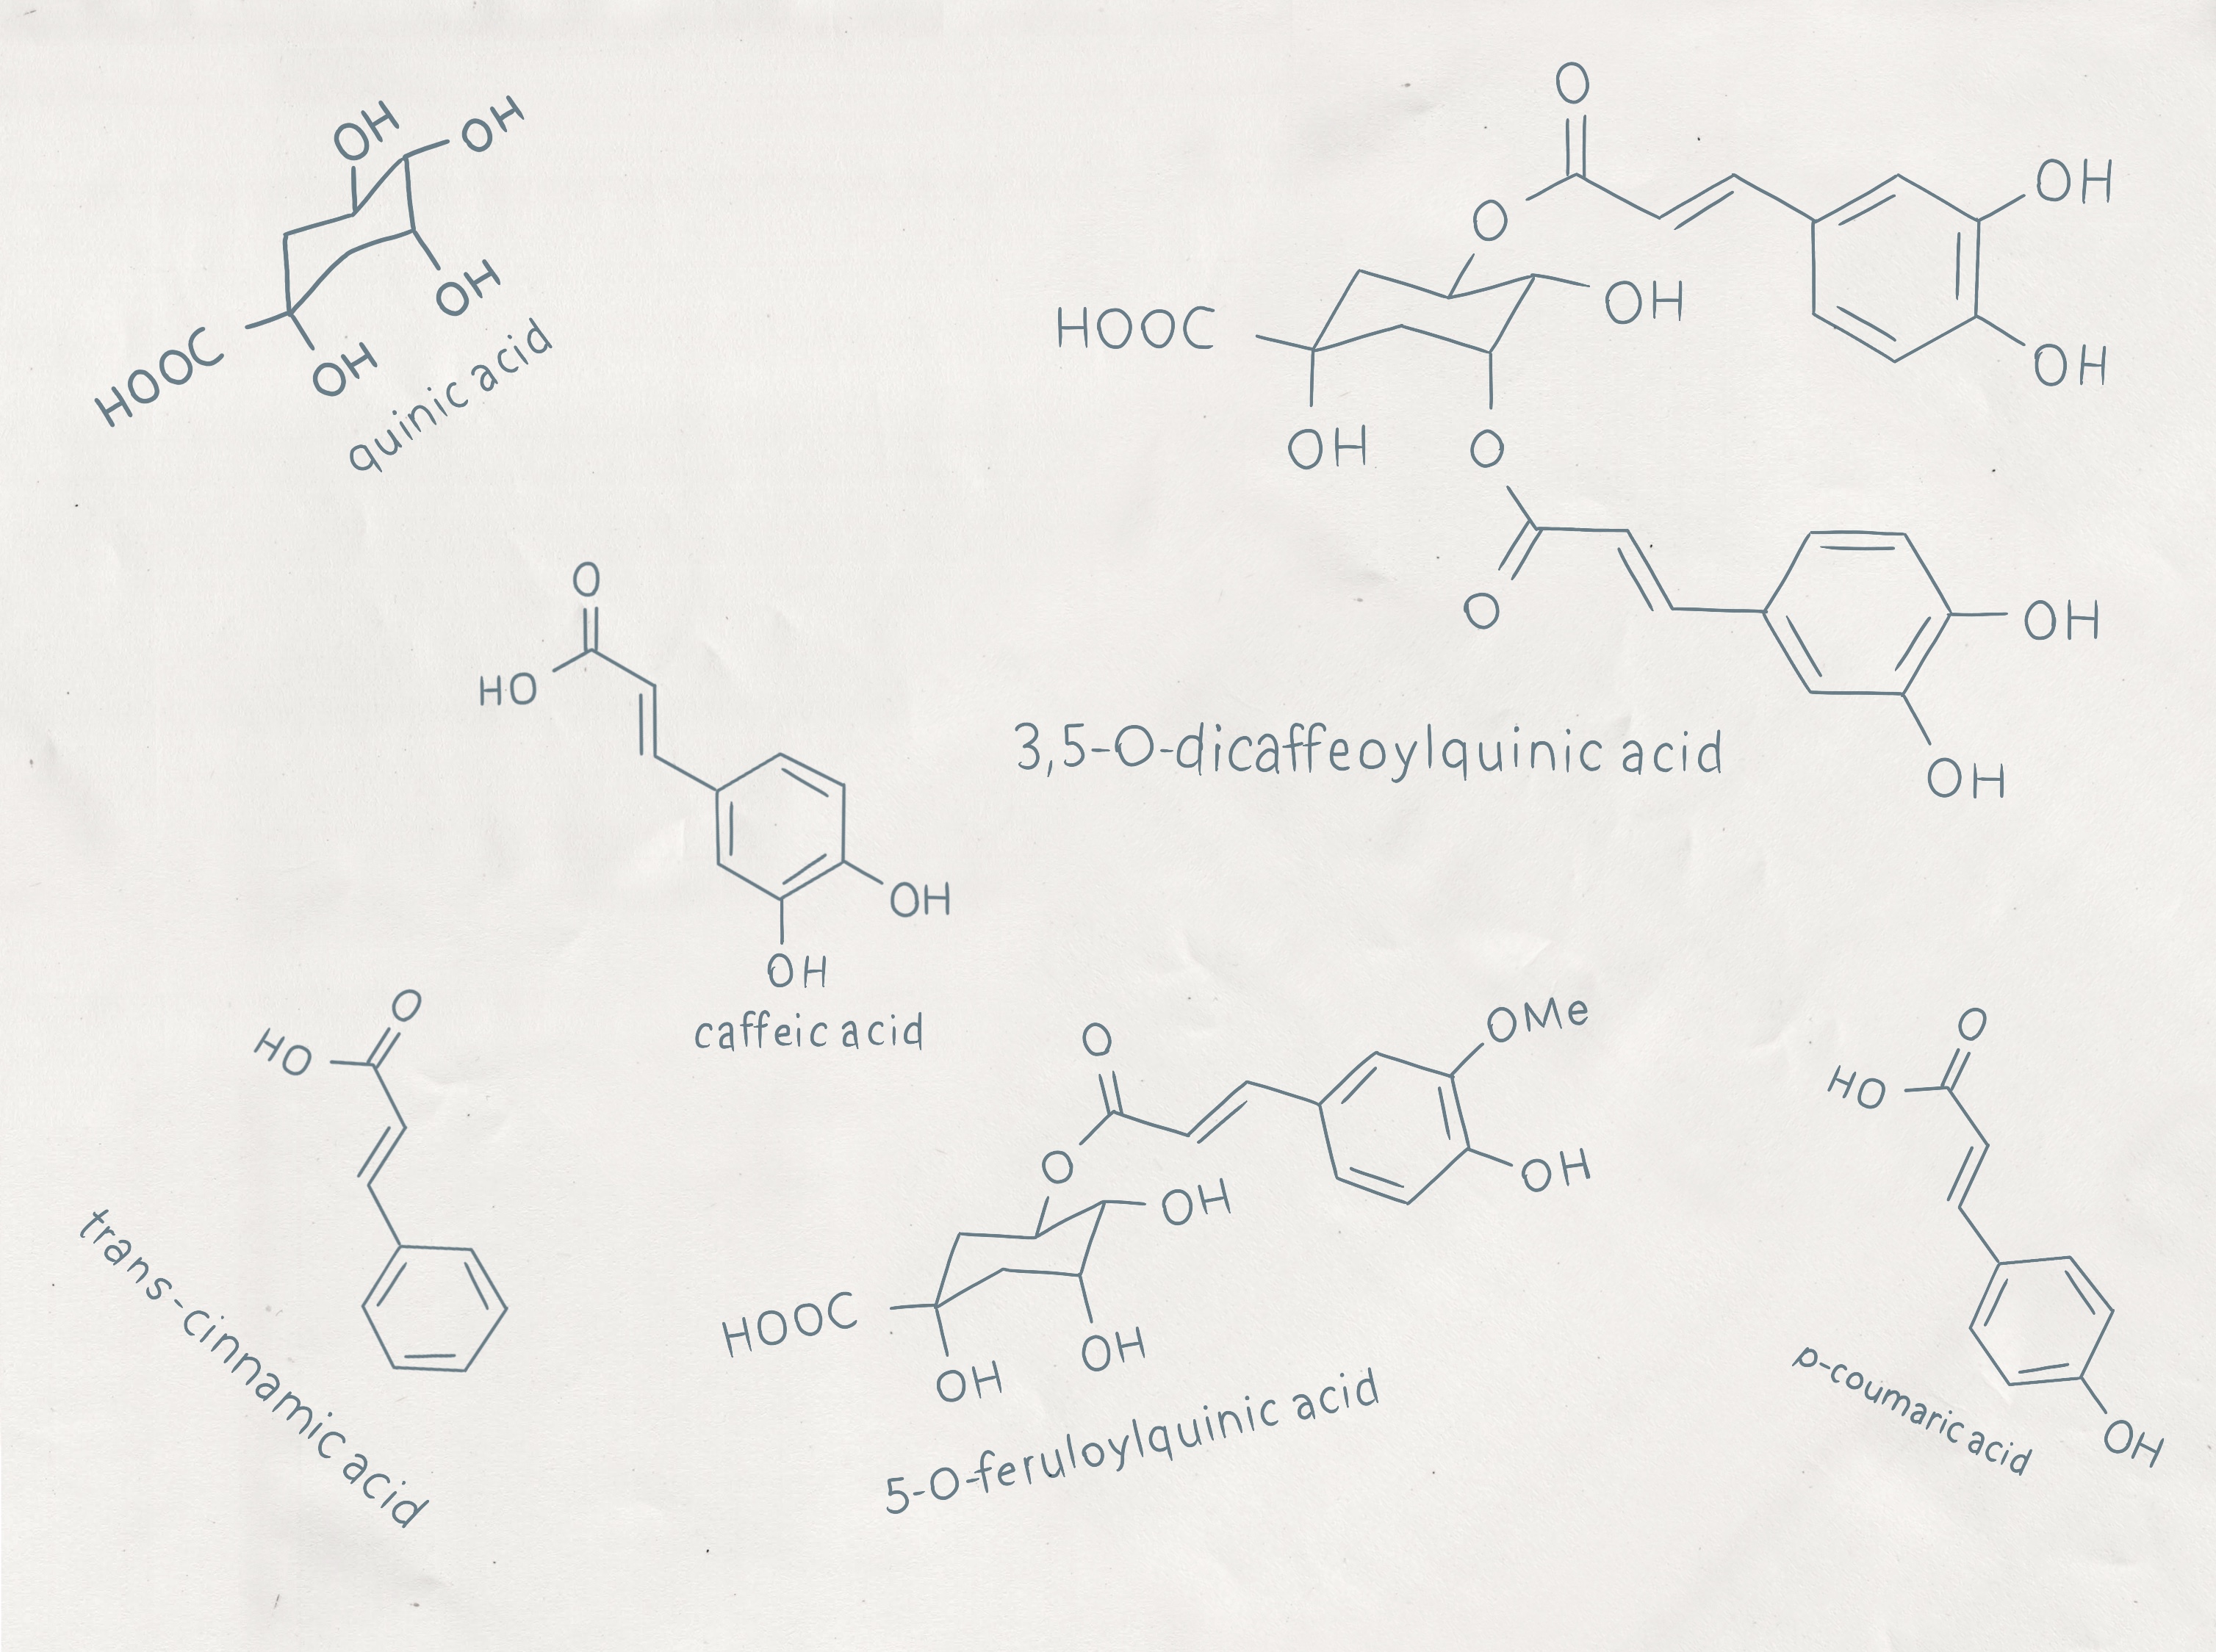 OH
OH
OH
HOOC
OH
quinic acid
O
O
OH
OH
OH
HOOC
OH
O
O
OH
OH
3,5-O-dicaffeoylquinic acid
O
HO
OH
OH
caffeic acid
O
HO
trans-cinnamic acid
O
OMe
O
OH
OH
HOOC
OH
OH
5-O-feruloylquinic acid
O
HO
p-coumaric acid
OH